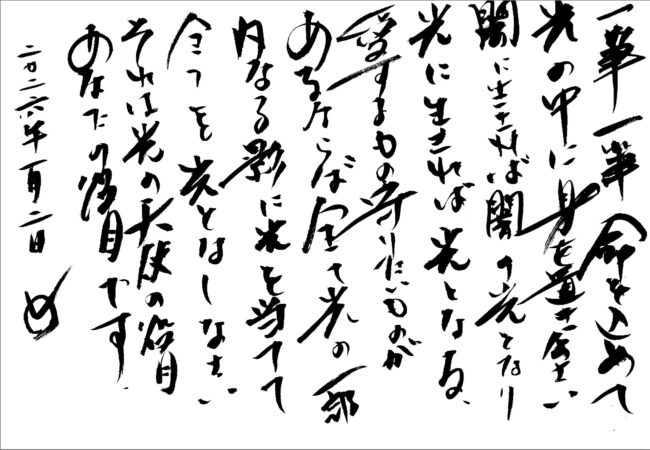 一筆一筆命を込めて
光の中に身を置きなさい
闇に生きれば闇の光となり
光に生きれば光となる
愛するもの守りたいものが
あるならば全て光の一部
内なる影に光を当てて
全てを光となしなさい
それは光の天使の役目
あなたの役目です
二〇二六年一月二日